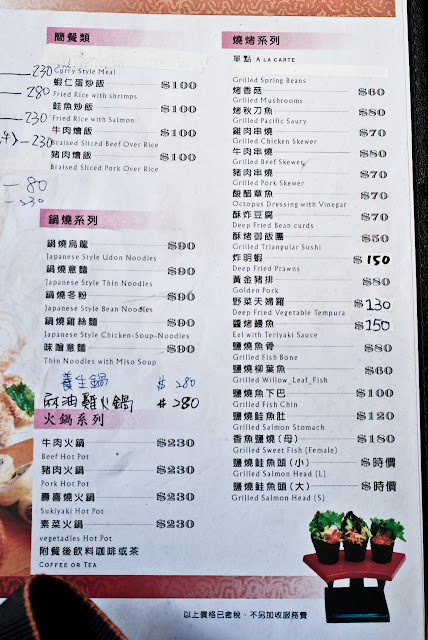 簡餐類
230
Curry Style Meal
蝦仁蛋炒飯 $100
280
Fried Rice with shrimps
鮭魚炒飯 $100
230
Fried Rice with Salmon
牛肉燴飯 $100
230
Braised Sliced Beef Over Rice
豬肉燴飯 $100
Braised Sliced Pork Over Rice
80
230
鍋燒系列
鍋燒烏龍 $90
Japanese Style Udon Noodles
鍋燒意麵 $90
Japanese Style Thin Noodles
鍋燒冬粉 $90
Japanese Style Bean Noodles
鍋燒雞絲麵 $90
Japanese Style Chicken-Soup-Noodles
味噌意麵 $90
Thin Noodles with Miso Soup
養生鍋 $280
麻油雞火鍋 $280
火鍋系列
牛肉火鍋 $230
Beef Hot Pot
豬肉火鍋 $230
Pork Hot Pot
壽喜燒火鍋 $230
Sukiyaki Hot Pot
素菜火鍋 $230
vegetadles Hot Pot
附餐後飲料咖啡或茶
COFFEE OR TEA
燒烤系列
單點 A LA CARTE
Grilled Spring Beans
烤香菇 $60
Grilled Mushrooms
烤秋刀魚 $80
Grilled Pacific Saury
雞肉串燒 $70
Grilled Chicken Skewer
牛肉串燒 $80
Grilled Beef Skewer
豬肉串燒 $70
Grilled Pork Skewer
酸醋章魚 $70
Octopus Dressing with Vinegar
酥炸豆腐 $70
Deep Fried Bean curds
酥烤御飯團 $50
Grilled Triangular Sushi
炸明蝦 $150
Deep Fried Prawns
黃金豬排 $80
Golden Pork
野菜天婦羅 $130
Deep Fried Vegetable Tempura
醬烤鰻魚 $150
Eel with Teriyaki Sauce
鹽燒魚骨 $80
Grilled Fish Bone
鹽燒柳葉魚 $60
Grilled Willow_Leaf_Fish
鹽燒魚下巴 $100
Grilled Fish Chin
鹽燒鮭魚肚 $120
Grilled Salmon Stomach
香魚鹽燒(母) $180
Grilled Sweet Fish (Female)
鹽燒鮭魚頭(小) $時價
Grilled Salmon Head (L)
鹽燒鮭魚頭(大) $時價
Grilled Salmon Head (S)
以上價格已含稅、不另加收服務費